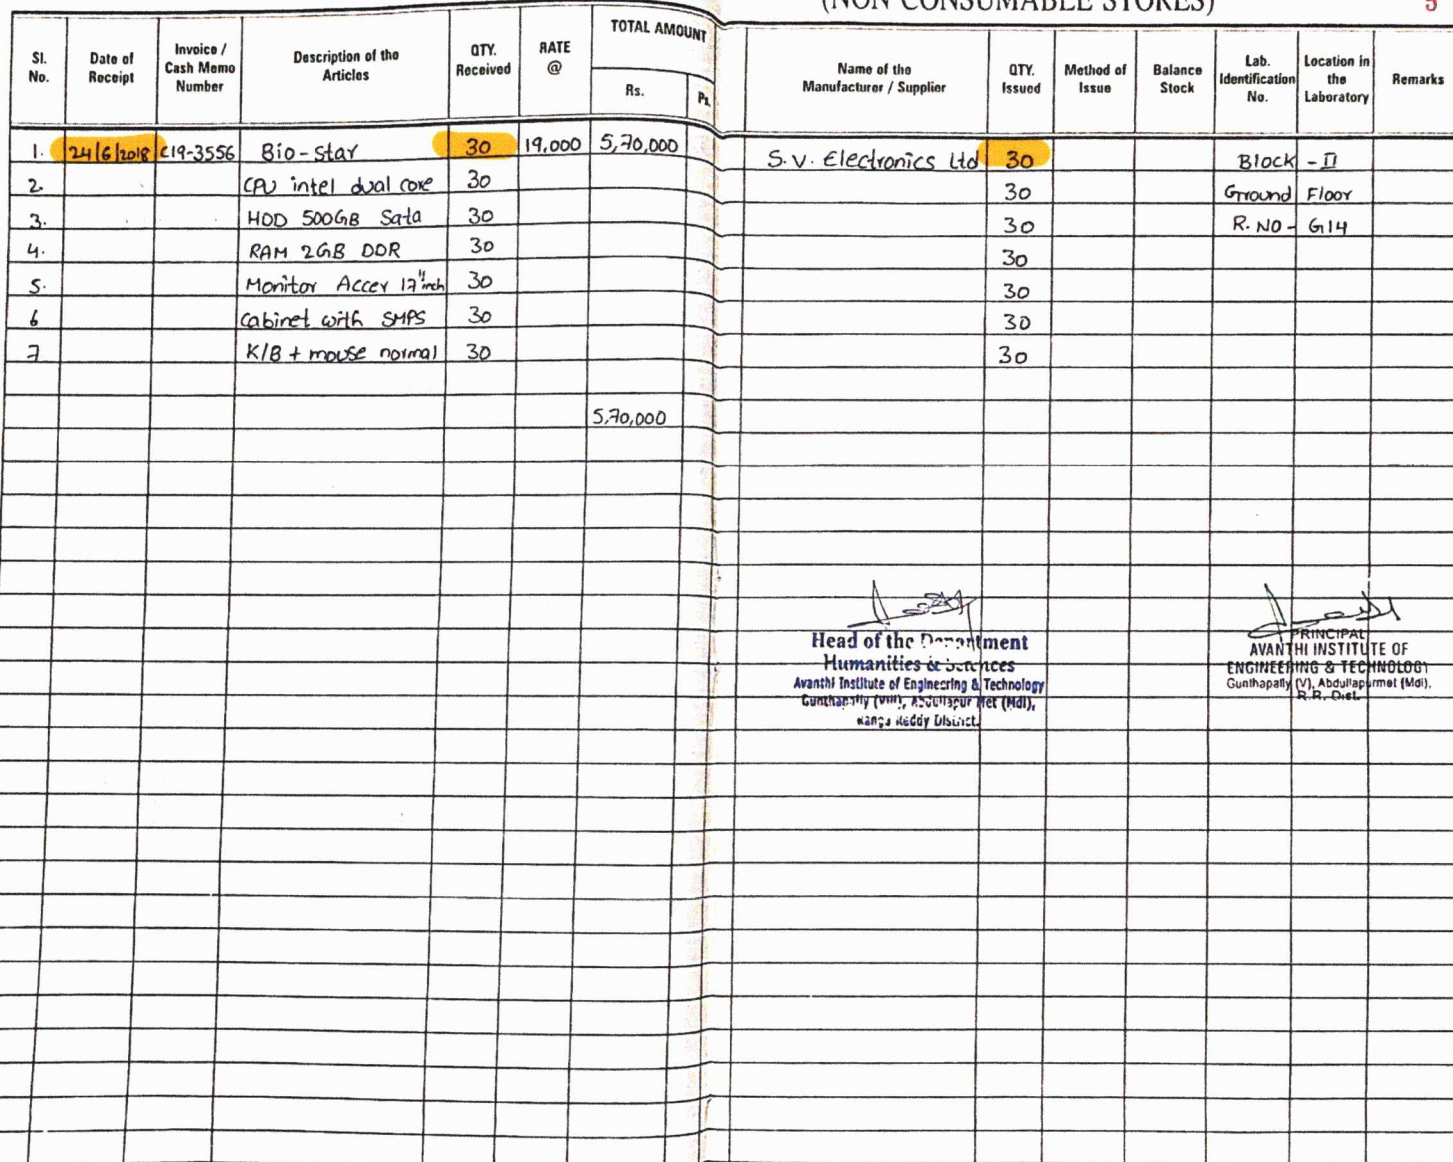 (NON CONSUMABLE STORES)
5
Sl. No. Date of Receipt Invoice / Cash Memo Number Description of the Articles QTY. Received RATE @ TOTAL AMOUNT Rs. Ps. Name of the Manufacturer / Supplier QTY. Issued Method of Issue Balance Stock Lab. Identification No. Location in the Laboratory Remarks
1. 24/6/2018 C19-3556 Bio-Star 30 19,000 5,70,000 S.V. Electronics Ltd 30 Block - II
2. CPU intel dual core 30 30 Ground Floor
3. HDD 500GB Sata 30 30 R. NO - G14
4. RAM 2GB DDR 30 30
5. Monitor Accer 17" inch 30 30
6 Cabinet with SMPS 30 30
7 K/B + mouse normal 30 30
5,70,000
Head of the Department
Humanities & Sciences
Avanthi Institute of Engineering & Technology
Gunthapally (Vill), Abdullapur Met (Mdl),
Ranga Reddy District.
PRINCIPAL
AVANTHI INSTITUTE OF
ENGINEERING & TECHNOLOGY
Gunthapally (V), Abdullapurmet (Mdl),
R.R. Dist.